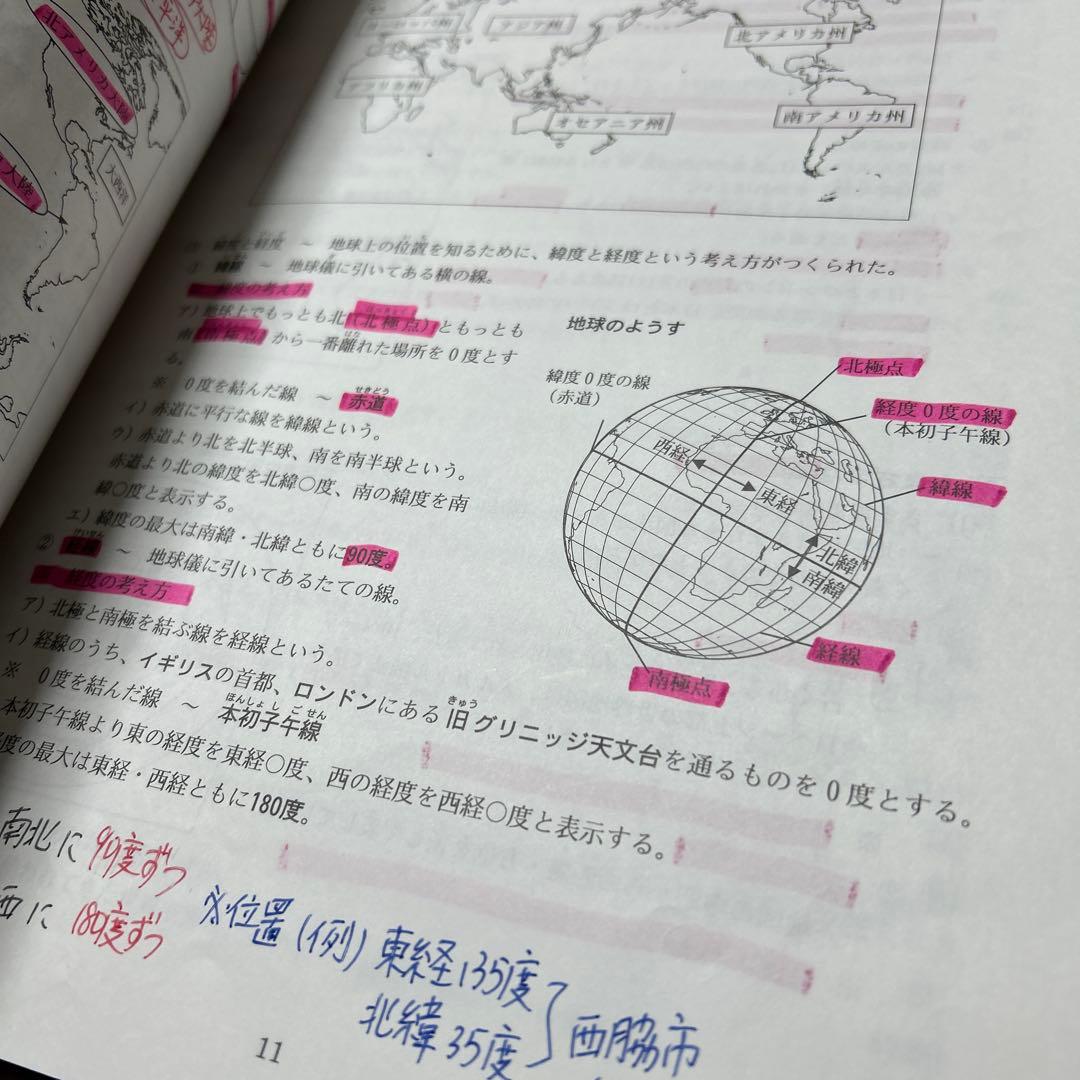 北アメリカ大陸
大陸
大西洋
アジア州
北アメリカ州
アフリカ州
オセアニア州
南アメリカ州
緯度と経度 ～ 地球上の位置を知るために、緯度と経度という考え方がつくられた。
① 緯線 ～ 地球儀に引いてある横の線。
緯度の考え方
ア）地球上でもっとも北（北極点）ともっとも
南（南極点）から一番離れた場所を０度とす
る。
※ ０度を結んだ線 ～ 赤道
イ）赤道に平行な線を緯線という。
ウ）赤道より北を北半球、南を南半球という。
赤道より北の緯度を北緯〇度、南の緯度を南
緯〇度と表示する。
エ）緯度の最大は南緯・北緯ともに90度。
② 経線 ～ 地球儀に引いてあるたての線。
経度の考え方
ア）北極と南極を結ぶ線を経線という。
イ）経線のうち、イギリスの首都、ロンドンにある旧グリニッジ天文台を通るものを０度とする。
※ ０度を結んだ線 ～ 本初子午線
本初子午線より東の経度を東経〇度、西の経度を西経〇度と表示する。
度の最大は東経・西経ともに180度。
地球のようす
緯度０度の線
（赤道）
北極点
経度０度の線
（本初子午線）
西経
東経
緯線
北緯
南緯
経線
南極点
南北に 90度ずつ
西に 180度ずつ
※位置（例）東経135度
北緯35度
西脇市
11